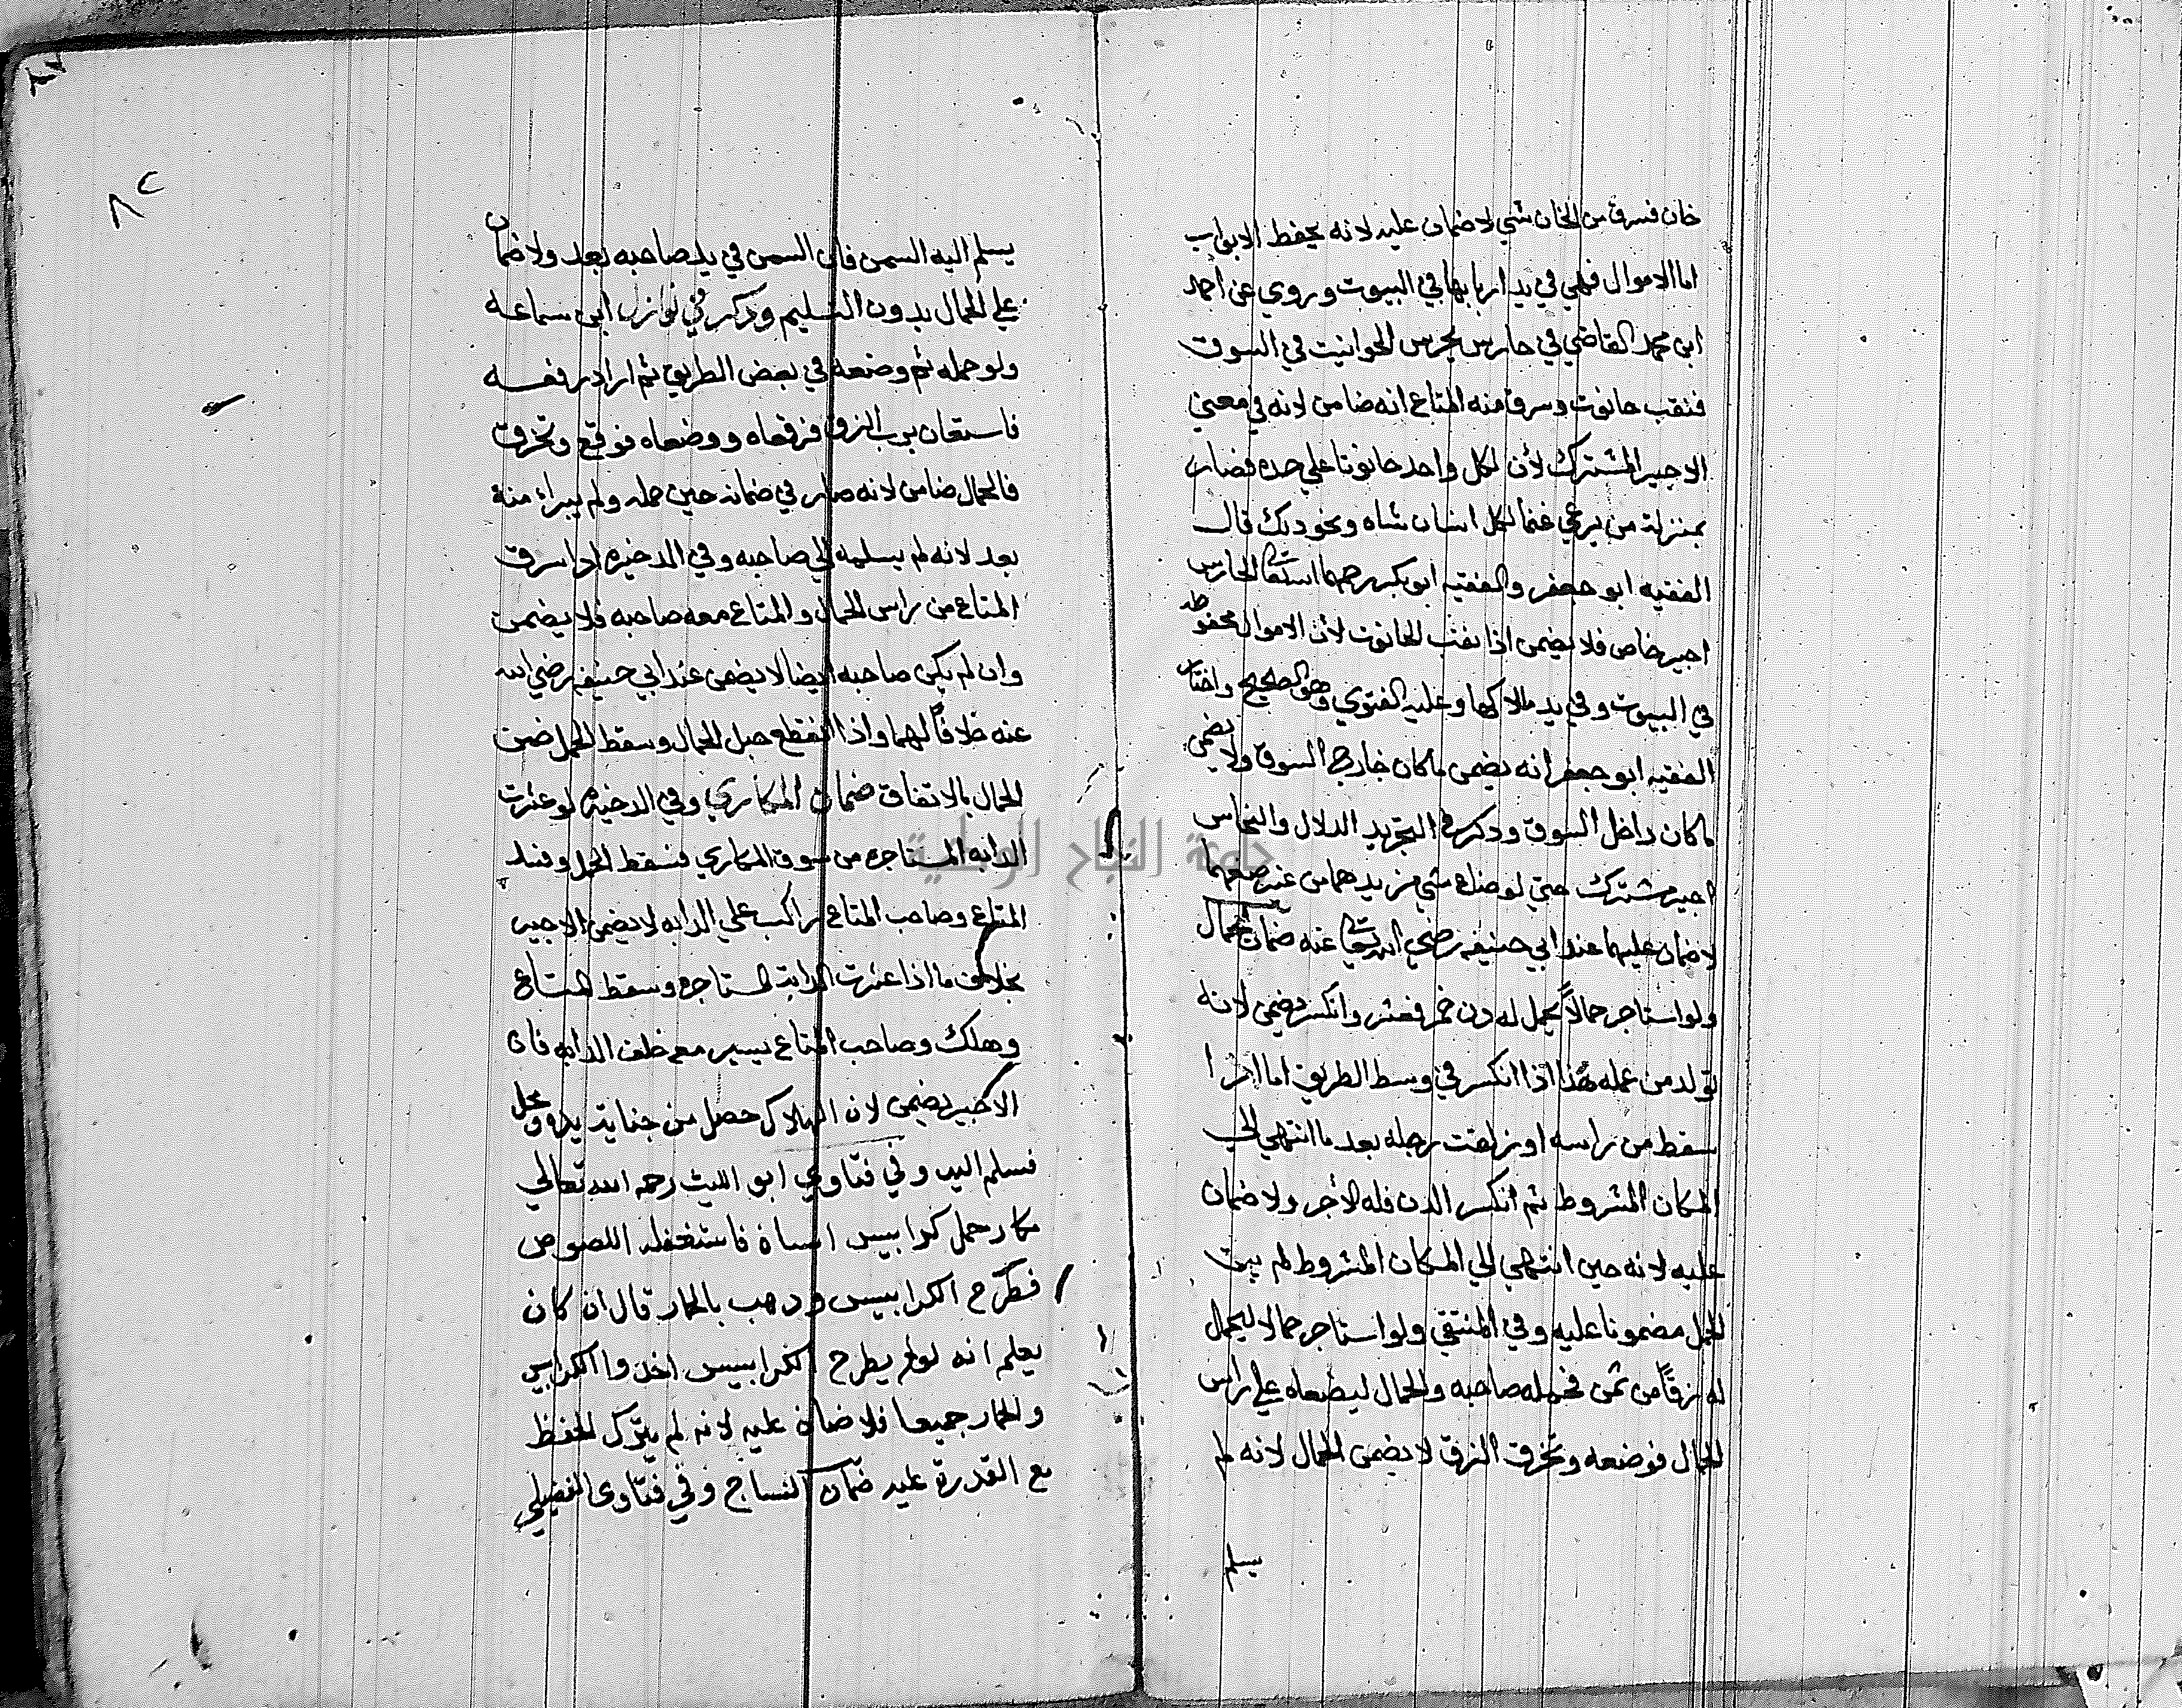 خان فسرق من الخان شي لا ضمان عليه لانه يحفظ الابواب
اما الاموال فهي في يد اربابها في البيوت وروي عن احمد
ابن محمد القاضي في حارس يحرس الحوانيت في السوق
فنقب حانوت وسرق منه المتاع انه ضامن لانه في معني
الاجير المشترك لأن لكل واحد حانوتا علي حده فصار
بمنزلة من يرعي غنما لكل انسان شاه ونحو ذلك قال
الفقيه ابو جعفر والفقيه ابو بكر رحمهما الله تعالى الحارس
اجير خاص فلا يضمن اذا نقب الحانوت لأن الاموال محفوظه
في البيوت وفي يد ملاكها وعليه الفتوي وهو الصحيح واختار
الفقيه ابو جعفر انه يضمن ما كان خارج السوق ولا يضمن
ما كان داخل السوق وذكر في التجريد الدلال والنخاس
اجير مشترك حتي لو ضاع شي من يدهما من غير صنعهما
لا ضمان عليهما عند ابي حنيفه رضي الله تعالى عنه ضمان الحمال
ولو استاجر حمالاً يحمل له دن خمر فعثر وانكسر يضمن لانه
تولد من عمله هذا اذا انكسر في وسط الطريق اما اذا
سقط من راسه او زلقت رجله بعد ما انتهي الي
المكان المشروط ثم انكسر الدن فله الأجر ولا ضمان
عليه لانه حين انتهي الي المكان المشروط لم يبق
الحمل مضمونا عليه وفي المنتقي ولو استاجر حمالا ليحمل
له زقاً من سمن فحمله صاحبه والحمال ليضعاه علي راس
الحمال فوضعه وتخرق الزق لا يضمن الحمال لانه لم
يسلم
٨٢
يسلم اليه السمن فان السمن في يد صاحبه بعد ولا ضمان
علي الحمال بدون التسليم وذكر في نوادر ابن سماعه
ولو حمله ثم وضعه في بعض الطريق ثم اراد رفعه
فاستعان برب الزق فرفعاه ووضعاه فوقع وتخرق
فالحمال ضامن لانه صار في ضمانه حين حمله ولم يبراء منه
بعد لانه لم يسلمه الي صاحبه وفي الدخيره اذا سرق
المتاع من راس الحمال والمتاع معه صاحبه فلا يضمن
وان لم يكن صاحبه ايضا لا يضمن عند ابي حنيفه رضي الله
عنه خلافاً لهما واذا انقطع حبل الحمال وسقط الحمل ضمن
الحمال بالاتفاق ضمان المكاري وفي الدخيره لو عثرت
الدابه المستاجره من سوق المكاري فسقط الحمل وفسد
المتاع وصاحب المتاع راكب علي الدابه لا يضمن الاجير
بخلاف ما اذا عثرت الدابة المستاجره وسقط المتاع
وهلك وصاحب المتاع يسير مع خلف الدابه فان
الاجير يضمن لان الهلاك حصل من جناية يده ومحل
فسلم اليه وفي فتاوي ابو الليث رحمه الله تعالي
مكار حمل كرابيس انسان فاستقبله اللصوص
فطرح الكرابيس وذهب بالحمار قال ان كان
يعلم انه لو لم يطرح الكرابيس اخذوا الكرابيس
والحمار جميعا فلا ضمان عليه لانه لم يترك الحفظ
مع القدرة عليه ضمان النساج وفي فتاوى الفضيلي
جامعة النجاح الوطنية